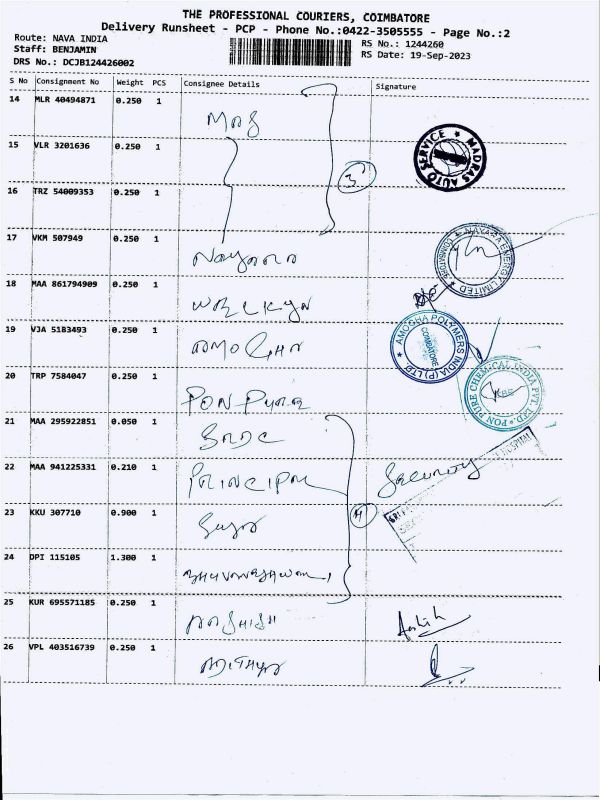 THE PROFESSIONAL COURIERS, COIMBATORE
Delivery Runsheet - PCP - Phone No.:0422-3505555 - Page No.:2
Route: NAVA INDIA
RS No.: 1244260
Staff: BENJAMIN
RS Date: 19-Sep-2023
DRS No.: DCJB124426002
S No Consignment No Weight PCS Consignee Details Signature
14 MLR 40494871 0.250 1
MADRAS AUTO SERVICE
15 VLR 3201636 0.250 1
3
16 TRZ 54009353 0.250 1
17 VKM 507949 0.250 1 Nayara
NAYARA ENERGY LIMITED
18 MAA 861794909 0.250 1
19 VJA 5183493 0.250 1 AMOGHA
AMOGHA POLYMERS INDIA (P) LTD.
COIMBATORE
20 TRP 7584047 0.250 1 PON PURE
PON PURE CHEMICAL INDIA PVT. LTD.
21 MAA 295922851 0.050 1
22 MAA 941225331 0.210 1 PRINCIPAL Security
23 KKU 307710 0.900 1
4
24 DPI 115105 1.300 1
25 KUR 695571185 0.250 1 AASHISH Aashish
26 VPL 403516739 0.250 1 ADITHYA